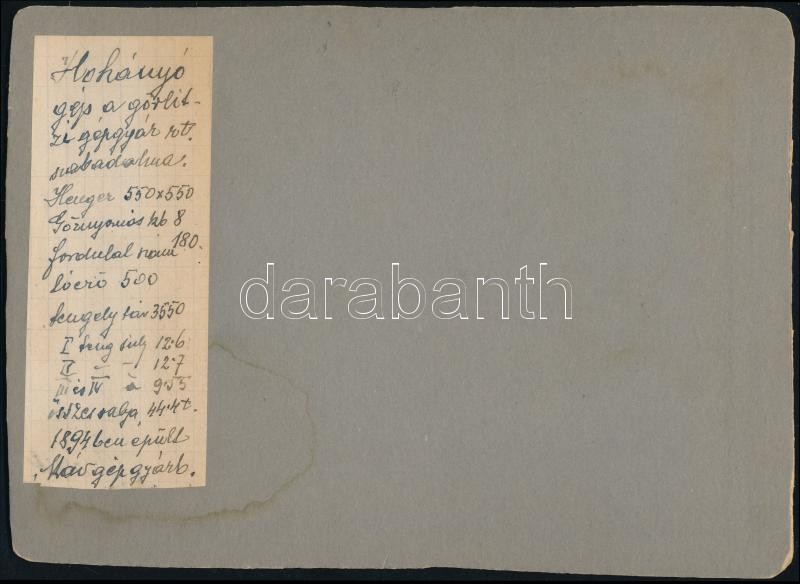 Hohányó
gép a görlit-
zi gépgyár rt.
szabadalma.
Henger 550x550
Gőznyomás kb 8
fordulat szám 180.
lóerő 500
tengely táv 3550
I teng súly 12·6
II - 12·7
III és IV à 9·55
összes súlya 44·4t.
1894ben épült
Máv gépgyárb.
darabanth